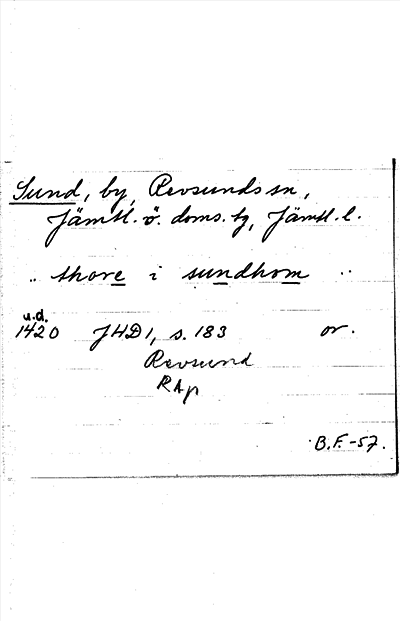 Sund, by, Revsunds sn,
Jämtl. ö. doms. tg, Jämtl. l.
.. thore i sundhom ..
u.d.
1420 JHD 1, s. 183 or.
Revsund
RAp
B.F.-57.